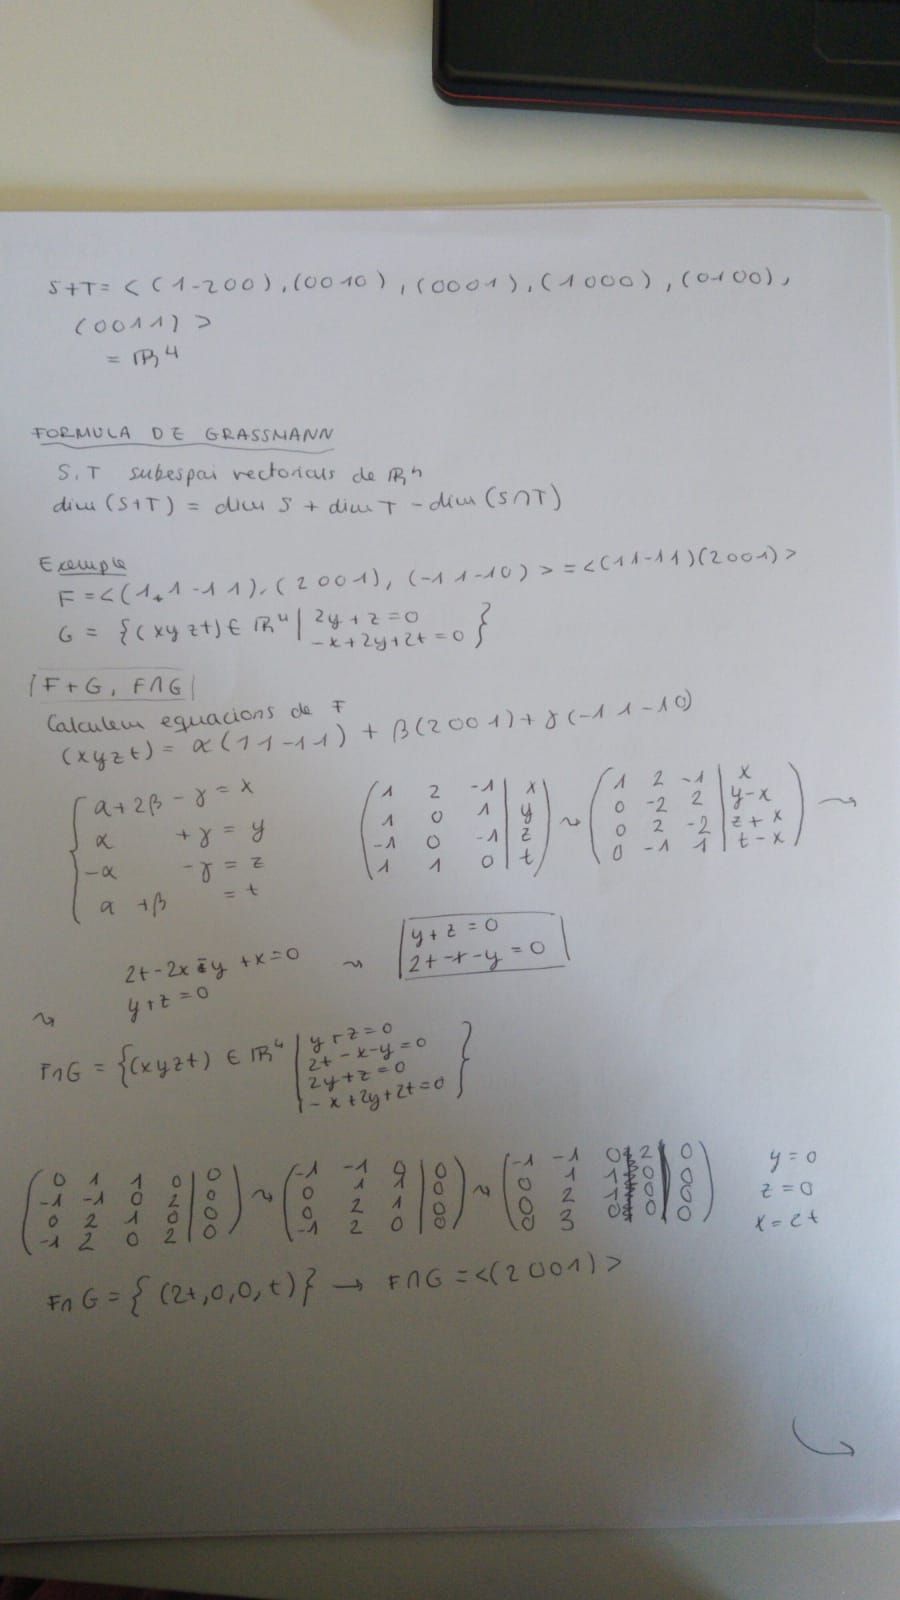 S+T= < (1-200), (0010), (0001), (1000), (0100),
(0011) >
= ℝ⁴
FORMULA DE GRASSMANN
S, T subespai vectorials de ℝⁿ
dim (S+T) = dim S + dim T - dim (S∩T)
Exemple
F = < (1,1-11), (2001), (-11-10) > = <(11-11)(2001)>
G = {(xyzt) ∈ ℝ⁴ | 2y+z=0
-x+2y+2t=0 }
|F+G, F∩G|
Calculem equacions de F
(xyzt) = α(11-11) + β(2001) + γ(-11-10)
{ α+2β-γ = x
α +γ = y
-α -γ = z
α +β = t
( 1 2 -1 | x
1 0 1 | y
-1 0 -1 | z
1 1 0 | t ) ~ ( 1 2 -1 | x
0 -2 2 | y-x
0 2 -2 | z+x
0 -1 1 | t-x ) ~
~ 2t-2x-y+x=0
y+z=0
~ y+z=0
2t-x-y=0
F∩G = {(xyzt) ∈ ℝ⁴ | y+z=0
2t-x-y=0
2y+z=0
-x+2y+2t=0 }
( 0 1 1 0 | 0
-1 -1 0 2 | 0
0 2 1 0 | 0
-1 2 0 2 | 0 ) ~ ( -1 -1 0 | 0
0 1 1 | 0
0 2 1 | 0
-1 2 0 | 0 ) ~ ( -1 -1 0 2 | 0
0 1 1 0 | 0
0 2 1 0 | 0
0 3 0 0 | 0 )
y=0
z=0
x=2t
F∩G = { (2t,0,0,t) } → F∩G = <(2001)>